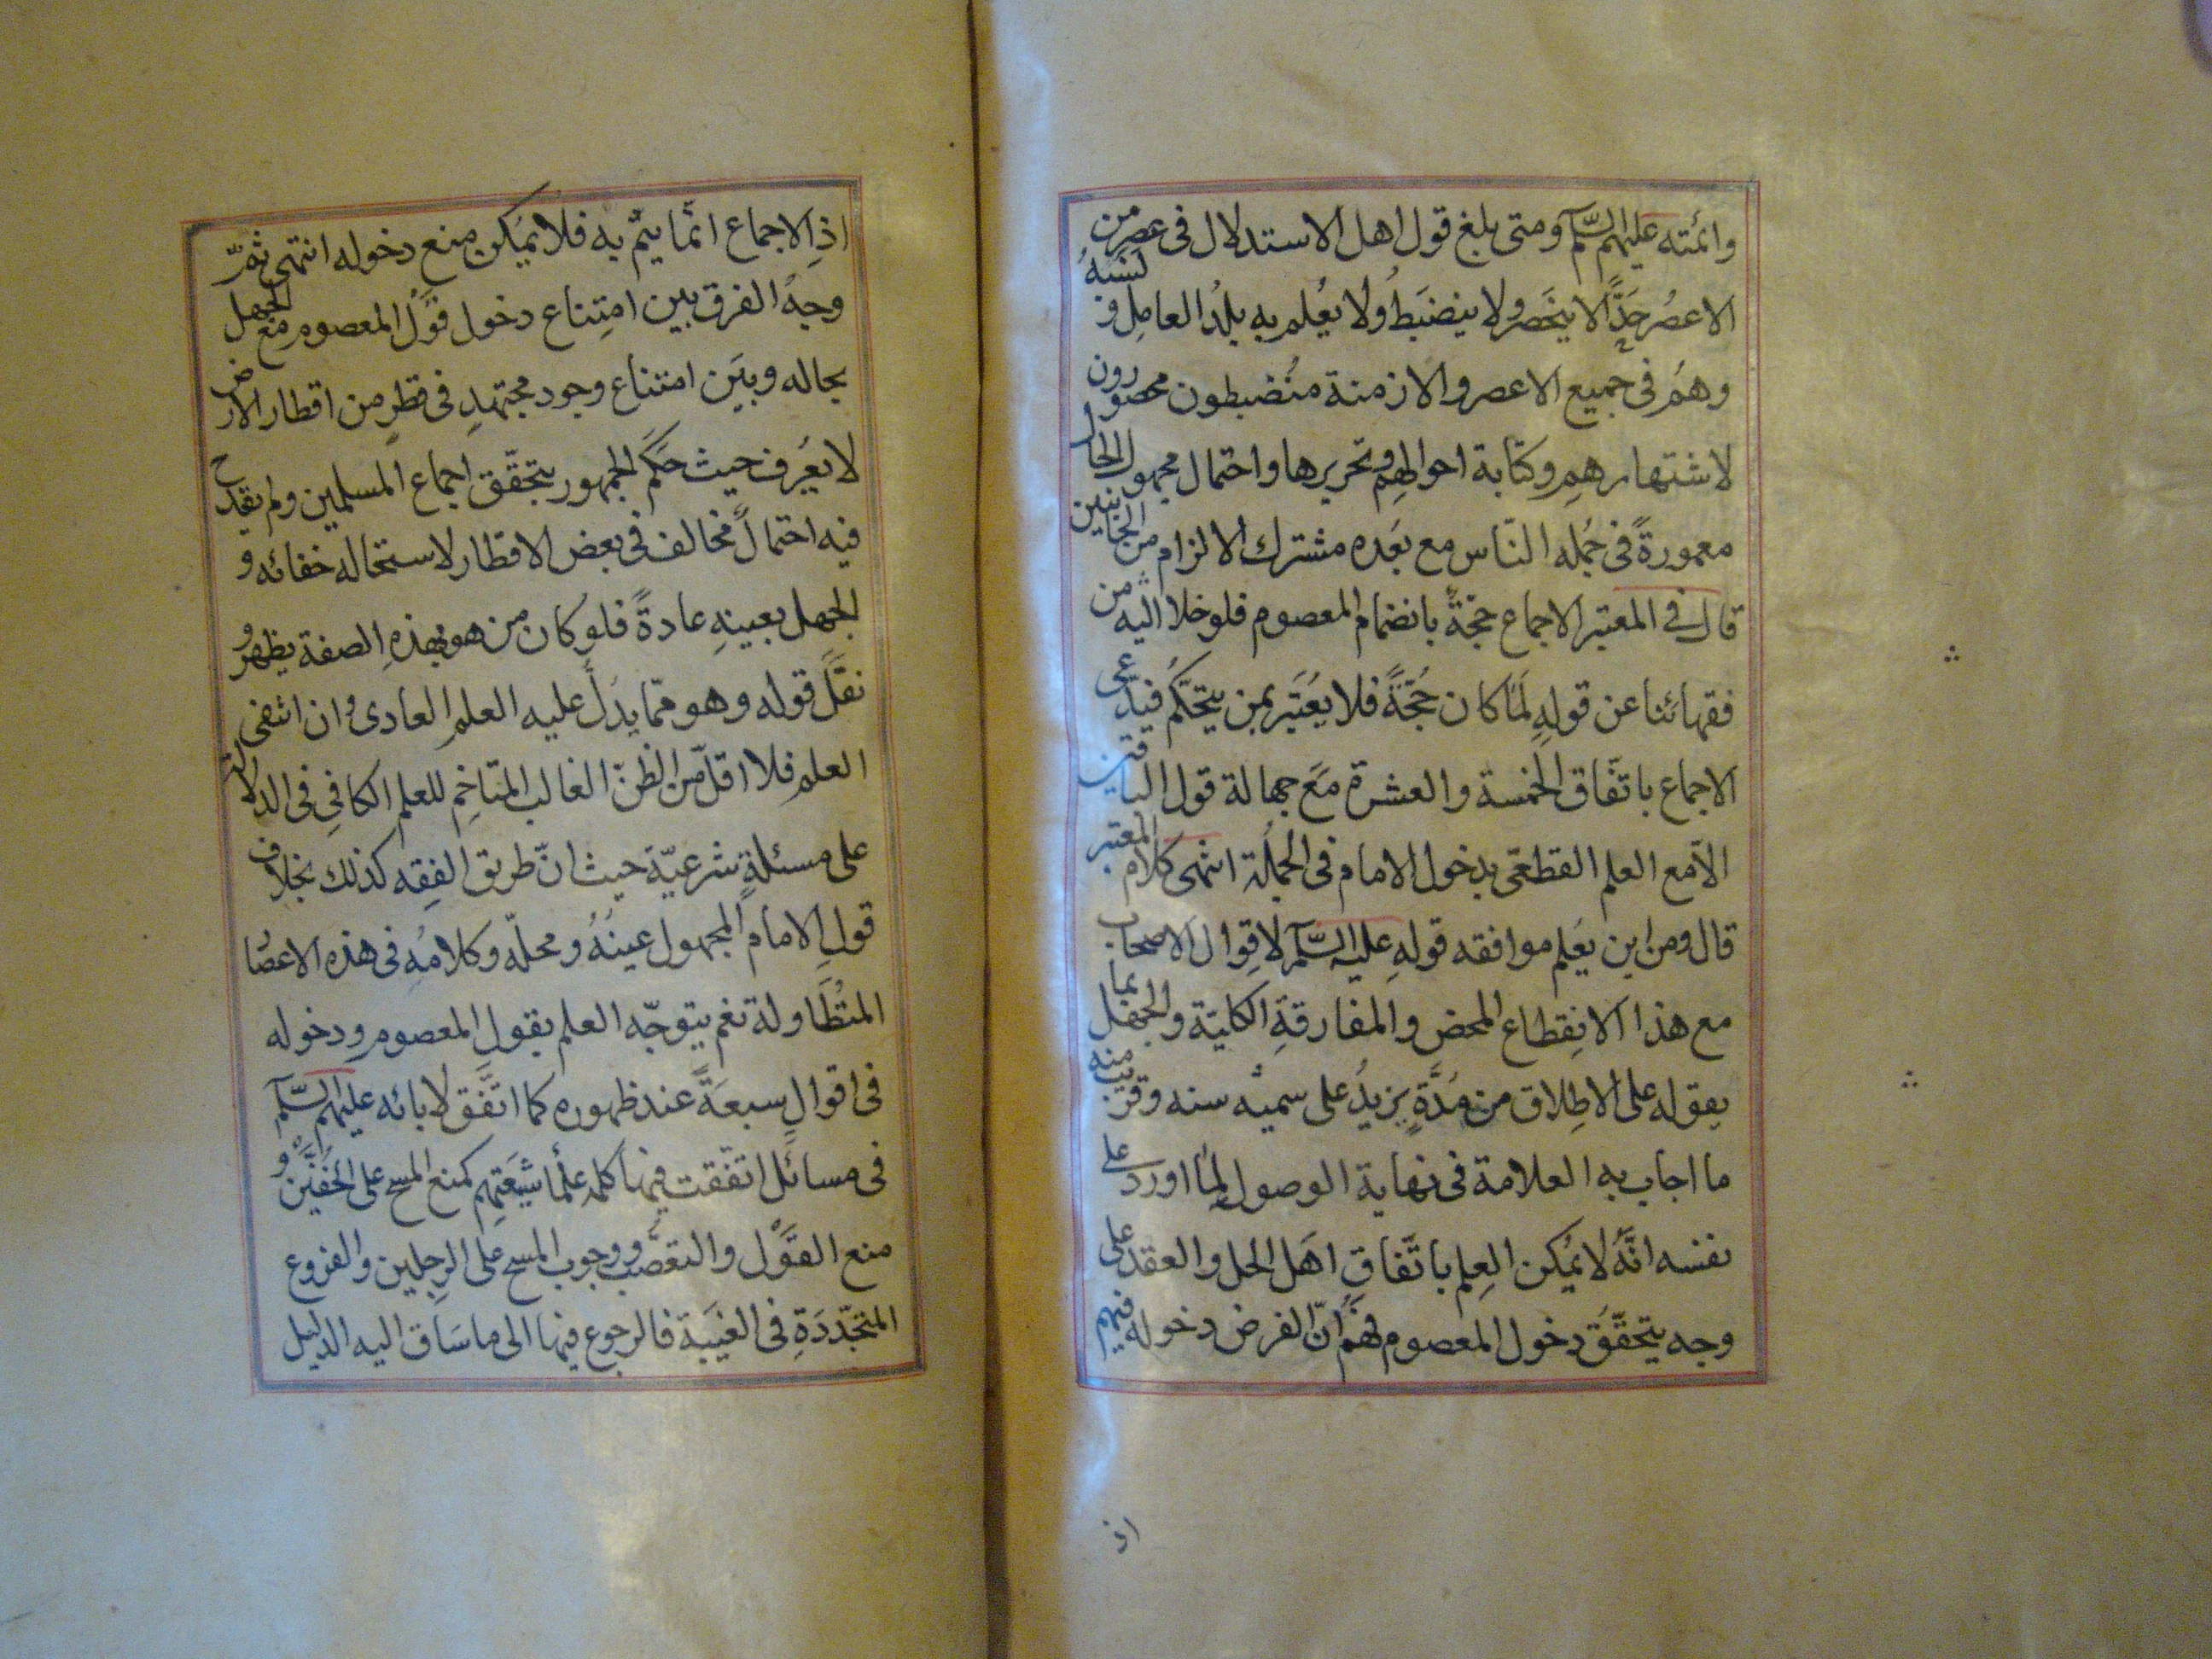 وائمته عليهم السّلم ومتى بلغ قول اهل الاستدلال فى عصر من
الاعصُر حَدًّا لا ينحَصر ولا ينضبَطُ ولا يُعلم به بلدُ العامِل و نَسَبهُ
وهمُ فى جميع الاعصر والازمنة منُضبطون محصورون
لاشتهارهمِ وكتابة احوالهِم وتحريرها واحتمال مجهول الحال
معمورةً فى جُمله النّاس مع بعَده مشترك الالزام من الجانبين
قال فى المعتبر الاجماع حجّةً بانضمام المعصوم فلو خلا الثمانة من
فقهائنا عن قولهِ لَما كان حُجّةً فلا يعُتَبر بمن يتحكّم فيدّعى
الاجماع باتفّاق الخمسة والعشرة معَ جهالة قول الباقين
الاّ مع العلم القطعّى بدخول الامام فى الجملُة انتهى كلام المعتبر
قال ومن اين يعَلم موافقه قولهِ عليه السّلم لاقوال الاصحاب
مع هذا الانِقطاع المحض والمفارقةِ الكلية والجهل بما
يقوله على الاطِلاق من مُدَّةٍ يزيدُ على ستمائه سنه وقريب منه
ما اجاب به العلامة فى نهاية الوصول لمِا اورد على
نفسه انَّه لا يمُكن العِلم باتَّفاقِ اهَل الحل والعقد على
وجه يتحقَّق دخول المعصوم فيهم انّ الفرض دخوله فيهم
اذ
اذِ الاجماع انّما يتم به فلا يمُكن منع دخوله انتهى ثمّ
وجهُ الفرق بين امتِناع دخول قوَل المعصوم مع الجهل
بحاله وبيَن امتناع وجود مجتهدِ فى قطرٍ من اقطار الارض
لا يعُرف حيث حَكَم الجمهور بتحقّق اجماع المسلمين ولم يقدح
فيه احتمال مخالف فى بعض الاقطار لاستحاله خفائه و
الجهل بعينهِ عادةً فلو كان من هو بهذهِ الصفة يظهر و
نقلَ قوله وهو ممّا يدَلّ عليه العلم العادى وان انتفى
العلم فلا اقلّ من الظنّ الغالب المتاخِمِ للعلم الكافِى فى الدلالة
على مسئلةٍ شرعيّة حيث انّ طريق الفِقه كذلك بخلاف
قولِ الامام المجهول عينهُ ومحلّه وكلامُه فى هذه الاعصُا
المتُطَاولة نعَم يتوجّه العلم بقولِ المعصوم ودخوله
فى اقوال سبعَةً عند ظهوره كما اتفَّق لابائه عليهم السّلم
فى مسائل اتفّقت فيها كلمه علمأ شيَعَتِهم كمنع المسح على الخفَّين و
منع العَوَل والتعصُب ووجوب المسح على الرجِلين والفروع
المتجّددَةِ فى الغيَبَة فالرجوع فيها الى ما سَاق اليه الدليل